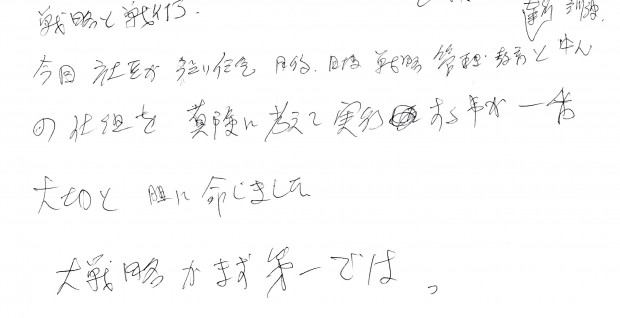 戦略と戦術。
訓練
今回 社長が 強い信念 目的、目標 戦略 管理 教育と
の仕組を 真険に考えて実行 する事が 一番
大切と 肝に命じました
大戦略がまず第一では。